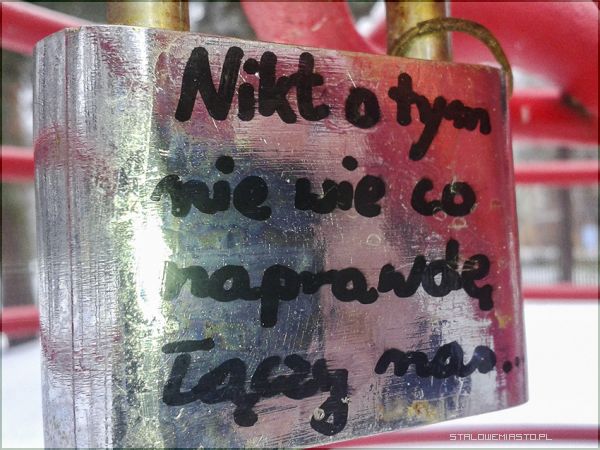 Nikt o tym
nie wie co
naprawdę
Łączy nas...
STALOWEMIASTO.PL